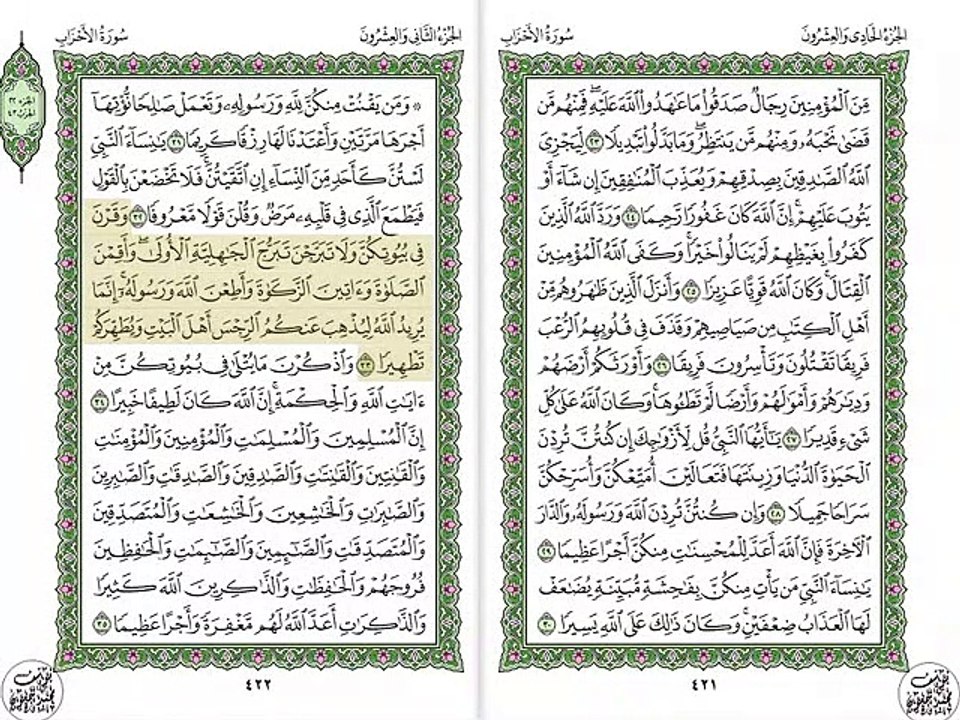 الجزء الحادي والعشرون
سورة الأحزاب
مِّنَ ٱلْمُؤْمِنِينَ رِجَالٌ صَدَقُوا۟ مَا عَٰهَدُوا۟ ٱللَّهَ عَلَيْهِ ۖ فَمِنْهُم مَّن
قَضَىٰ نَحْبَهُۥ وَمِنْهُم مَّن يَنتَظِرُ ۖ وَمَا بَدَّلُوا۟ تَبْدِيلًا ٢٣ لِّيَجْزِىَ
ٱللَّهُ ٱلصَّٰدِقِينَ بِصِدْقِهِمْ وَيُعَذِّبَ ٱلْمُنَٰفِقِينَ إِن شَآءَ أَوْ
يَتُوبَ عَلَيْهِمْ ۚ إِنَّ ٱللَّهَ كَانَ غَفُورًا رَّحِيمًا ٢٤ وَرَدَّ ٱللَّهُ ٱلَّذِينَ
كَفَرُوا۟ بِغَيْظِهِمْ لَمْ يَنَالُوا۟ خَيْرًا ۚ وَكَفَى ٱللَّهُ ٱلْمُؤْمِنِينَ
ٱلْقِتَالَ ۚ وَكَانَ ٱللَّهُ قَوِيًّا عَزِيزًا ٢٥ وَأَنزَلَ ٱلَّذِينَ ظَٰهَرُوهُم مِّنْ
أَهْلِ ٱلْكِتَٰبِ مِن صَيَاصِيهِمْ وَقَذَفَ فِى قُلُوبِهِمُ ٱلرُّعْبَ
فَرِيقًا تَقْتُلُونَ وَتَأْسِرُونَ فَرِيقًا ٢٦ وَأَوْرَثَكُمْ أَرْضَهُمْ
وَدِيَٰرَهُمْ وَأَمْوَٰلَهُمْ وَأَرْضًا لَّمْ تَطَـُٔوهَا ۚ وَكَانَ ٱللَّهُ عَلَىٰ كُلِّ
شَىْءٍ قَدِيرًا ٢٧ يَٰٓأَيُّهَا ٱلنَّبِىُّ قُل لِّأَزْوَٰجِكَ إِن كُنتُنَّ تُرِدْنَ
ٱلْحَيَوٰةَ ٱلدُّنْيَا وَزِينَتَهَا فَتَعَالَيْنَ أُمَتِّعْكُنَّ وَأُسَرِّحْكُنَّ
سَرَاحًا جَمِيلًا ٢٨ وَإِن كُنتُنَّ تُرِدْنَ ٱللَّهَ وَرَسُولَهُۥ وَٱلدَّارَ
ٱلْـَٔاخِرَةَ فَإِنَّ ٱللَّهَ أَعَدَّ لِلْمُحْسِنَٰتِ مِنكُنَّ أَجْرًا عَظِيمًا ٢٩
يَٰنِسَآءَ ٱلنَّبِىِّ مَن يَأْتِ مِنكُنَّ بِفَٰحِشَةٍ مُّبَيِّنَةٍ يُضَٰعَفْ
لَهَا ٱلْعَذَابُ ضِعْفَيْنِ ۚ وَكَانَ ذَٰلِكَ عَلَى ٱللَّهِ يَسِيرًا ٣٠
٤٢١
الجزء الثاني والعشرون
سورة الأحزاب
۞ وَمَن يَقْنُتْ مِنكُنَّ لِلَّهِ وَرَسُولِهِۦ وَتَعْمَلْ صَٰلِحًا نُّؤْتِهَآ
أَجْرَهَا مَرَّتَيْنِ وَأَعْتَدْنَا لَهَا رِزْقًا كَرِيمًا ٣١ يَٰنِسَآءَ ٱلنَّبِىِّ
لَسْتُنَّ كَأَحَدٍ مِّنَ ٱلنِّسَآءِ ۚ إِنِ ٱتَّقَيْتُنَّ فَلَا تَخْضَعْنَ بِٱلْقَوْلِ
فَيَطْمَعَ ٱلَّذِى فِى قَلْبِهِۦ مَرَضٌ وَقُلْنَ قَوْلًا مَّعْرُوفًا ٣٢ وَقَرْنَ
فِى بُيُوتِكُنَّ وَلَا تَبَرَّجْنَ تَبَرُّجَ ٱلْجَٰهِلِيَّةِ ٱلْأُولَىٰ ۖ وَأَقِمْنَ
ٱلصَّلَوٰةَ وَءَاتِينَ ٱلزَّكَوٰةَ وَأَطِعْنَ ٱللَّهَ وَرَسُولَهُۥٓ ۚ إِنَّمَا
يُرِيدُ ٱللَّهُ لِيُذْهِبَ عَنكُمُ ٱلرِّجْسَ أَهْلَ ٱلْبَيْتِ وَيُطَهِّرَكُمْ
تَطْهِيرًا ٣٣ وَٱذْكُرْنَ مَا يُتْلَىٰ فِى بُيُوتِكُنَّ مِنْ
ءَايَٰتِ ٱللَّهِ وَٱلْحِكْمَةِ ۚ إِنَّ ٱللَّهَ كَانَ لَطِيفًا خَبِيرًا ٣٤
إِنَّ ٱلْمُسْلِمِينَ وَٱلْمُسْلِمَٰتِ وَٱلْمُؤْمِنِينَ وَٱلْمُؤْمِنَٰتِ
وَٱلْقَٰنِتِينَ وَٱلْقَٰنِتَٰتِ وَٱلصَّٰدِقِينَ وَٱلصَّٰدِقَٰتِ وَٱلصَّٰبِرِينَ
وَٱلصَّٰبِرَٰتِ وَٱلْخَٰشِعِينَ وَٱلْخَٰشِعَٰتِ وَٱلْمُتَصَدِّقِينَ
وَٱلْمُتَصَدِّقَٰتِ وَٱلصَّٰٓئِمِينَ وَٱلصَّٰٓئِمَٰتِ وَٱلْحَٰفِظِينَ
فُرُوجَهُمْ وَٱلْحَٰفِظَٰتِ وَٱلذَّٰكِرِينَ ٱللَّهَ كَثِيرًا
وَٱلذَّٰكِرَٰتِ أَعَدَّ ٱللَّهُ لَهُم مَّغْفِرَةً وَأَجْرًا عَظِيمًا ٣٥
٤٢٢
الجزء ٢٢
الحزب ٤٣